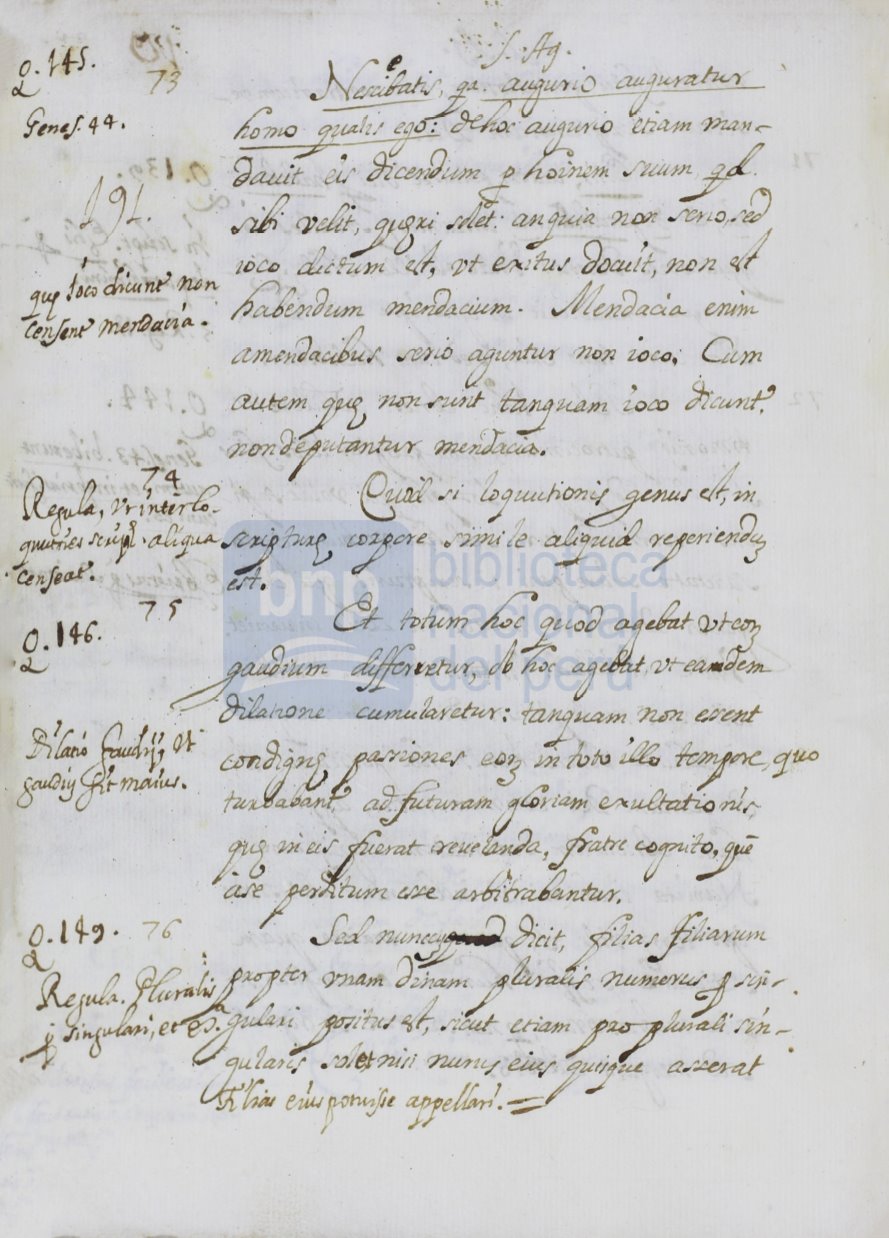 S. Ag.
Q. 145.
73
Genes. 44.
Nesciebatis, qa. augurio auguratur
homo qualis ego: de hoc augurio etiam man-
davit eis dicendum p hoinem suum, qd
191.
sibi velit, quęri solet: an quia non serio, sed
ioco dictum est, vt exitus docuit, non est
quę ioco dicunt' non
censent' mendacia.
habendum mendacium. Mendacia enim
amendacibus serio aguntur non ioco, Cum
autem quę non sunt tanquam ioco dicunt'
non deputantur mendacia.
74
Regula, vt interlo-
quutiões script. aliqua
censeat'.
Quod si loquutionis genus est, in
scripturę corpore simile aliquid reperienduȝ
est.
75
Q. 146.
Et totum hoc quod agebat vt eoȝ
gaudium differretur, ob hoc agebat, vt eamdem
dilatione cumularetur: tanquam non essent
Dilatio gaudij, vt
gaudiȝ sit maius.
condignę passiones eoȝ in toto illo tempore, quo
turbabant' ad futuram gloriam exultationis,
quę in eis fuerat revelanda, fratre cognito, quē
à se perditum esse arbitrabantur.
Q. 149.
76
Sed nunc dicit, filias filiarum
Regula. Pluralis
p singulari, et eɔ.ª
propter vnam dinam pluralis numerus p sin-
gulari positus est, sicut etiam pro plurali sin-
gularis solet nisi nurus eius quisque asserat
filias eius potuisse appellari.
bnp
biblioteca
nacional
del perú